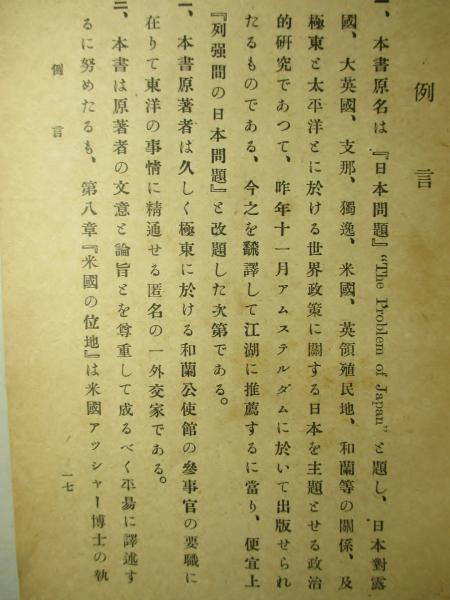 例言
一、本書原名は『日本問題』“The Problem of Japan”と題し、日本對露
國、大英國、支那、獨逸、米國、英領殖民地、和蘭等の關係、及
極東と太平洋とに於ける世界政策に關する日本を主題とせる政治
的研究であつて、昨年十一月アムステルダムに於いて出版せられ
たるものである、今之を飜譯して江湖に推薦するに當り、便宜上
『列强間の日本問題』と改題した次第である。
一、本書原著者は久しく極東に於ける和蘭公使館の參事官の要職に
在りて東洋の事情に精通せる匿名の一外交家である。
一、本書は原著者の文意と論旨とを尊重して成るべく平易に譯述す
るに努めたるも、第八章『米國の位地』は米國アッシャー博士の執
例言
一七